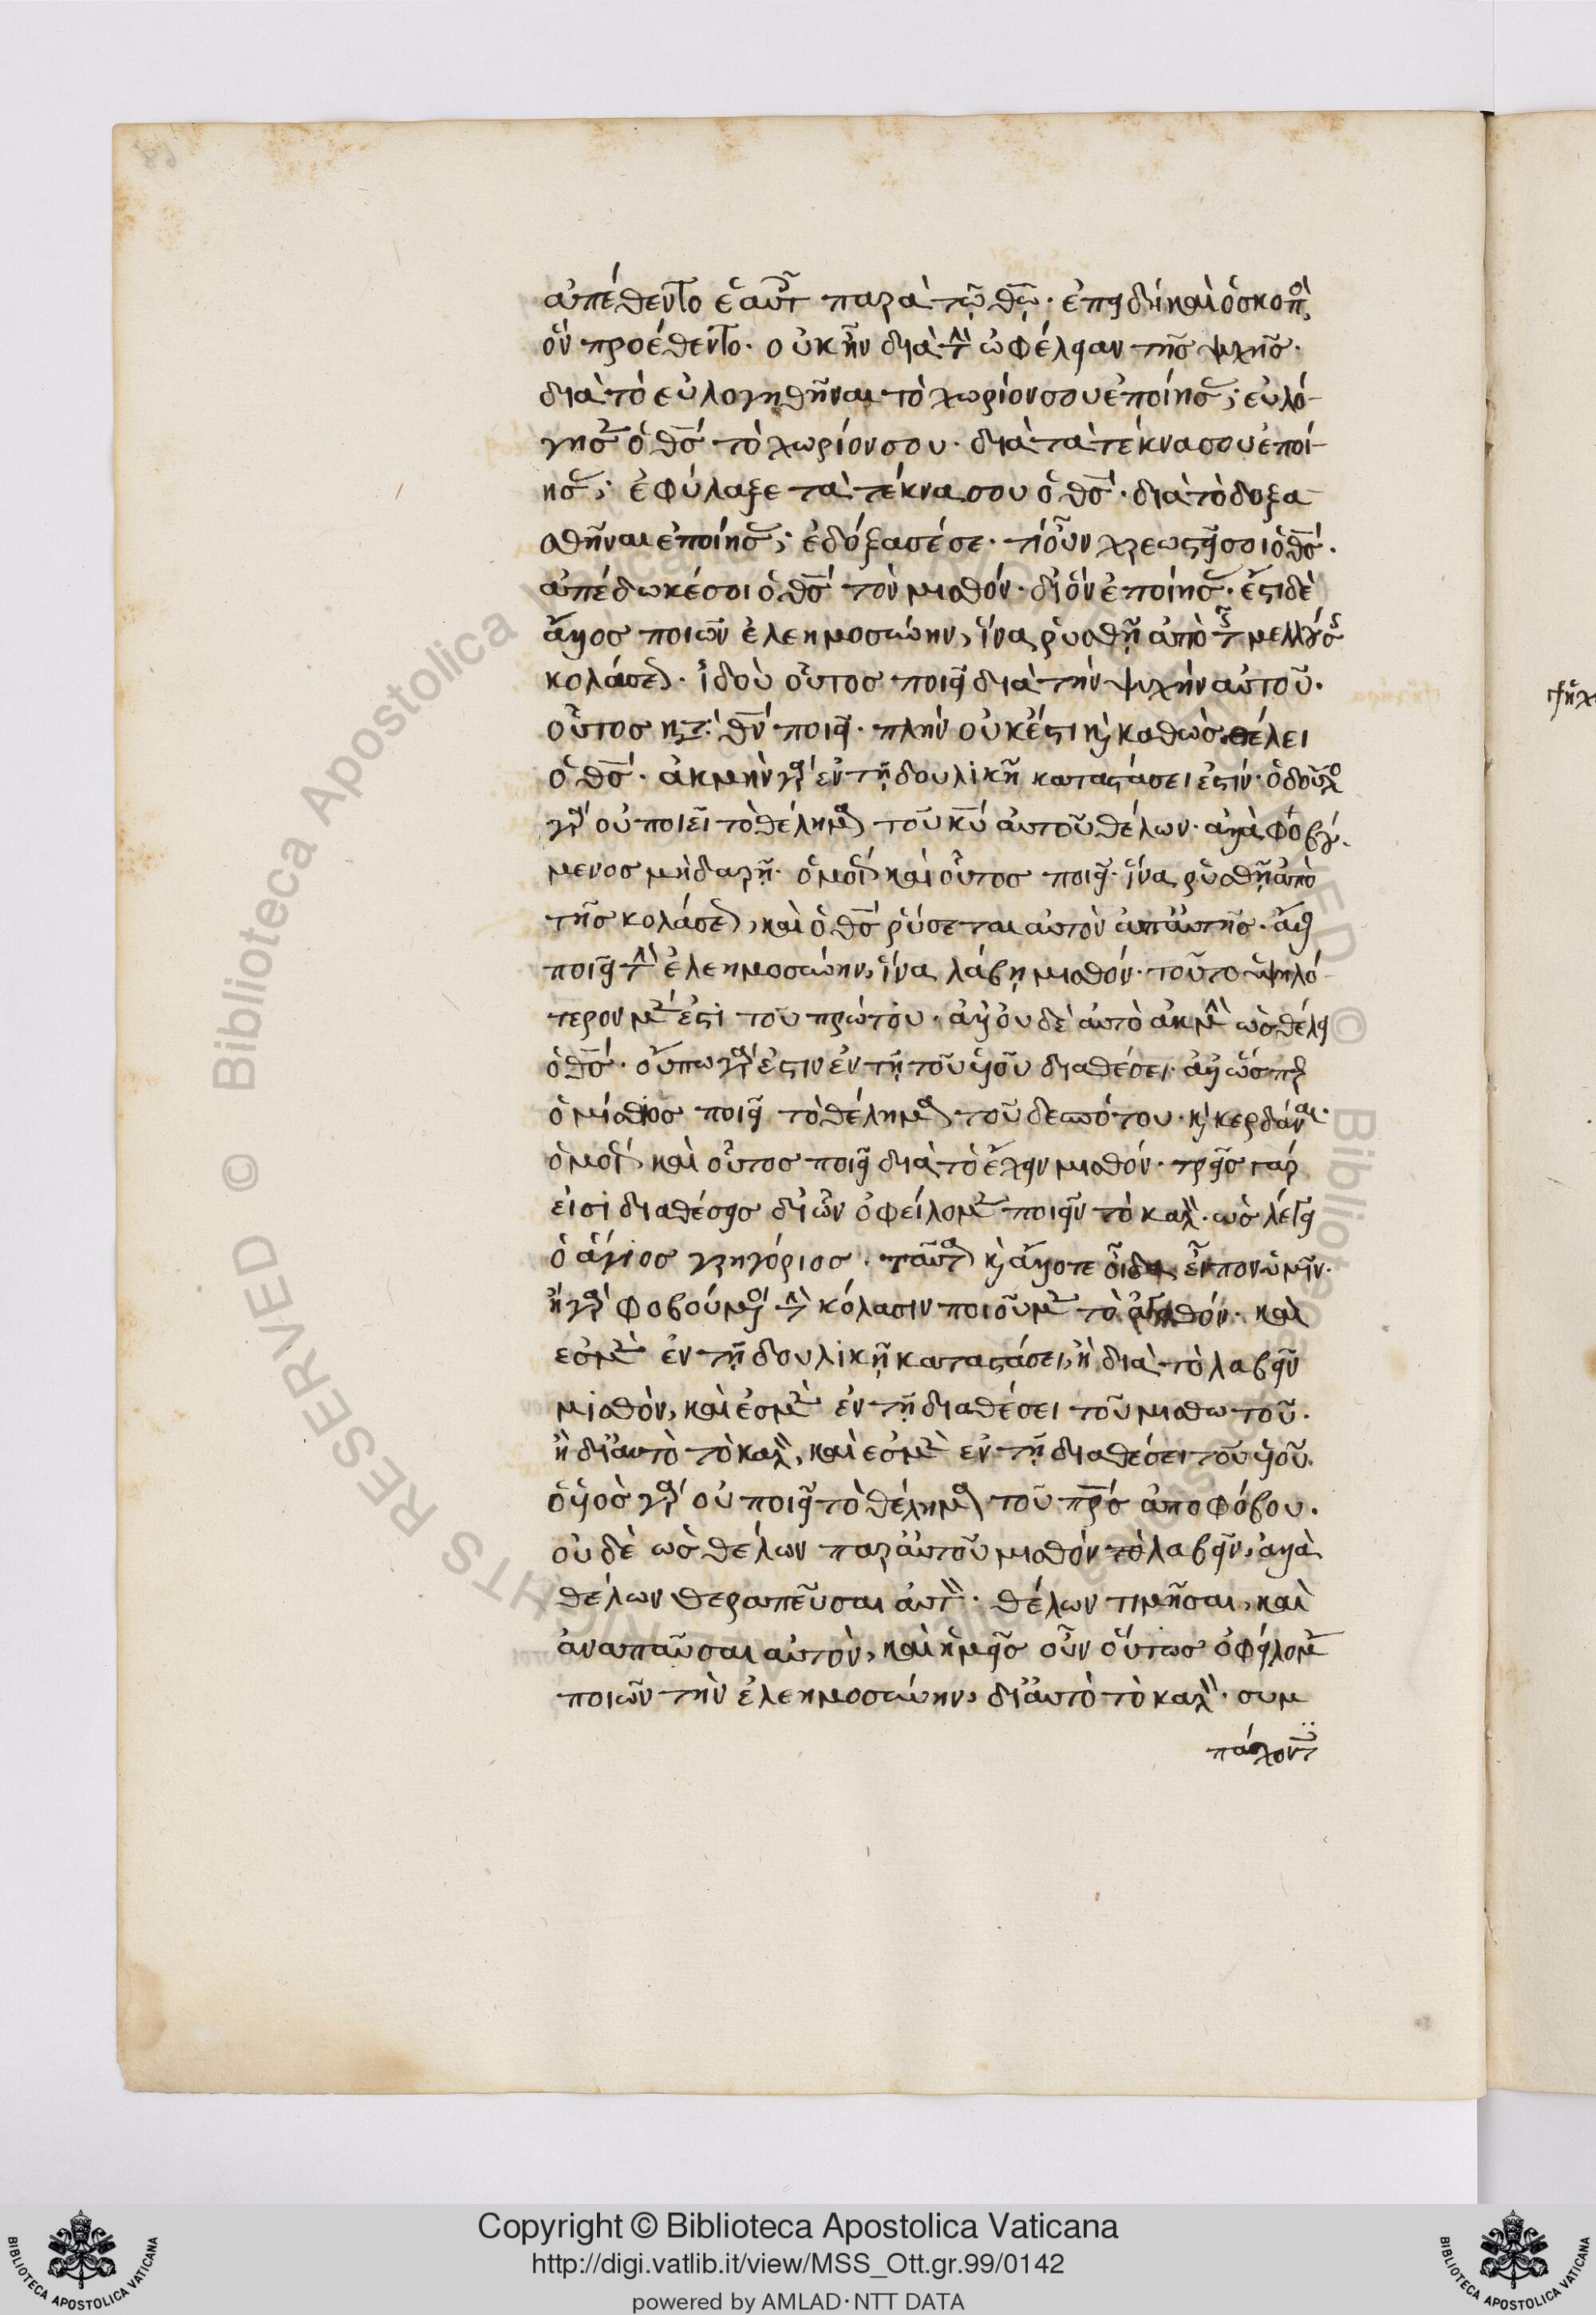 ἀπέθεντο ἑαυτ παρὰ τῶ θῶ· ἐπειδὴ καὶ ὁ σκοπὸ,
ὃν προέθεντο· οὐκ ἦν διὰ τὴν ὠφέλειαν τῆς ψχῆς·
διὰ τὸ εὐλογηθῆναι τὸ χωρίον σου ἐποίησας; εὐλό-
γησεν ὁ θς τὸ χωρίον σου· διὰ τὰ τέκνα σου ἐποί-
ησας; ἐφύλαξε τὰ τέκνα σου ὁ θς· διὰ τὸ δοξα
σθῆναι ἐποίησας; ἐδόξασέ σε· τί οὖν χρεωστεῖ σοι ὁ θς·
ἀπέδωκέ σοι ὁ θς τὸν μισθόν· δι' ὃν ἐποίησας· ἔστι δὲ
ἄλλος ποιῶν ἐλεημοσύνην, ἵνα ῥυσθῆ ἀπὸ τῆς μελλούσης
κολάσεως· ἰδοὺ οὗτος ποιεῖ διὰ τὴν ψυχὴν αὐτοῦ·
οὗτος κατὰ θν ποιεῖ· πλὴν οὐκ ἔστι κὶ καθὼς θέλει
ὁ θς· ἀκμὴν γὰρ ἐν τῆ δουλικῆ καταστάσει ἐστίν· ὁ δοῦλο
γὰρ οὐ ποιεῖ τὸ θέλημα τοῦ κυ αὐτοῦ θέλων· ἀλλὰ φοβού-
μενος μὴ δαρῆ· ὁμοί καὶ οὗτος ποιεῖ· ἵνα ῥυσθῆ ἀπὸ
τῆς κολάσεως, καὶ ὁ θς ῥύσεται αὐτὸν ἀπ' αὐτῆς· ἄλλος
ποιεῖ τὴν ἐλεημοσύνην, ἵνα λάβη μισθόν· τοῦτο ὑψηλό-
τερον μέν ἐστι τοῦ πρώτου· ἀλλ' οὐδὲ αὐτὸ ἀκμὴν ὡς θέλει
ὁ θς· οὔπω γάρ ἐστιν ἐν τῆ τοῦ υἱοῦ διαθέσει· ἀλλ' ὥσπερ
ὁ μίσθιος ποιεῖ τὸ θέλημα τοῦ δεσπότου· κὶ κερδάναι·
ὁμοί καὶ οὗτος ποιεῖ διὰ τὸ ἔχειν μισθόν· τρεῖς γάρ
εἰσι διαθέσεις δι' ὧν ὀφείλομεν ποιεῖν τὸ καλὸν· ὡς λέγει
ὁ ἅγιος γρηγόριος· ταῦτα κὶ ἄλλοτε οἶδα εἶπον ὑμῖν·
ἢ γὰρ φοβούμενοι τὴν κόλασιν ποιοῦμεν τὸ ἀγαθόν· καὶ
ἐσμὲν ἐν τῆ δουλικῆ καταστάσει, ἢ διὰ τὸ λαβεῖν
μισθὸν, καὶ ἐσμὲν ἐν τῆ διαθέσει τοῦ μισθωτοῦ·
ἢ δι' αὐτὸ τὸ καλὸν, καὶ ἐσμὲν ἐν τῆ διαθέσει τοῦ υἱοῦ.
ὁ υἱὸς γὰρ οὐ ποιεῖ τὸ θέλημα τοῦ πρς ἀπὸ φόβου.
οὐδὲ ὡς θέλων παρ' αὐτοῦ μισθὸν λαβεῖν, ἀλλὰ
θέλων θεραπεῦσαι αὐτὸν· θέλων τιμῆσαι, καὶ
ἀναπαῦσαι αὐτὸν, καὶ ἡμεῖς οὖν οὕτως ὀφείλομεν
ποιεῖν τὴν ἐλεημοσύνην, δι' αὐτὸ τὸ καλὸν· συμ
πάσχοντες
Copyright © Biblioteca Apostolica Vaticana
http://digi.vatlib.it/view/MSS_Ott.gr.99/0142
powered by AMLAD·NTT DATA